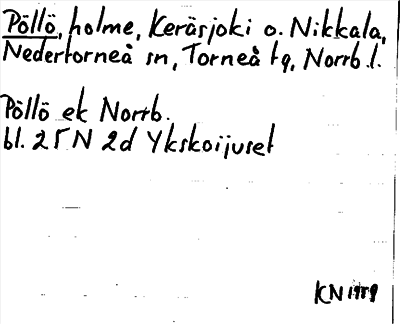 Pöllö, holme, Keräsjoki o. Nikkala,
Nedertorneå sn, Torneå tg, Norrb. l.
Pöllö ek Norrb.
bl. 25 N 2d Ykskoijuset
KN 1959